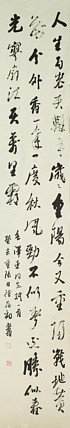 人生易老天難老歲歲重陽今又重陽戰地黃
花分外香一年一度秋風勁不似春光勝似春
光寥廓江天萬里霜
毛澤東詞
癸未重陽書